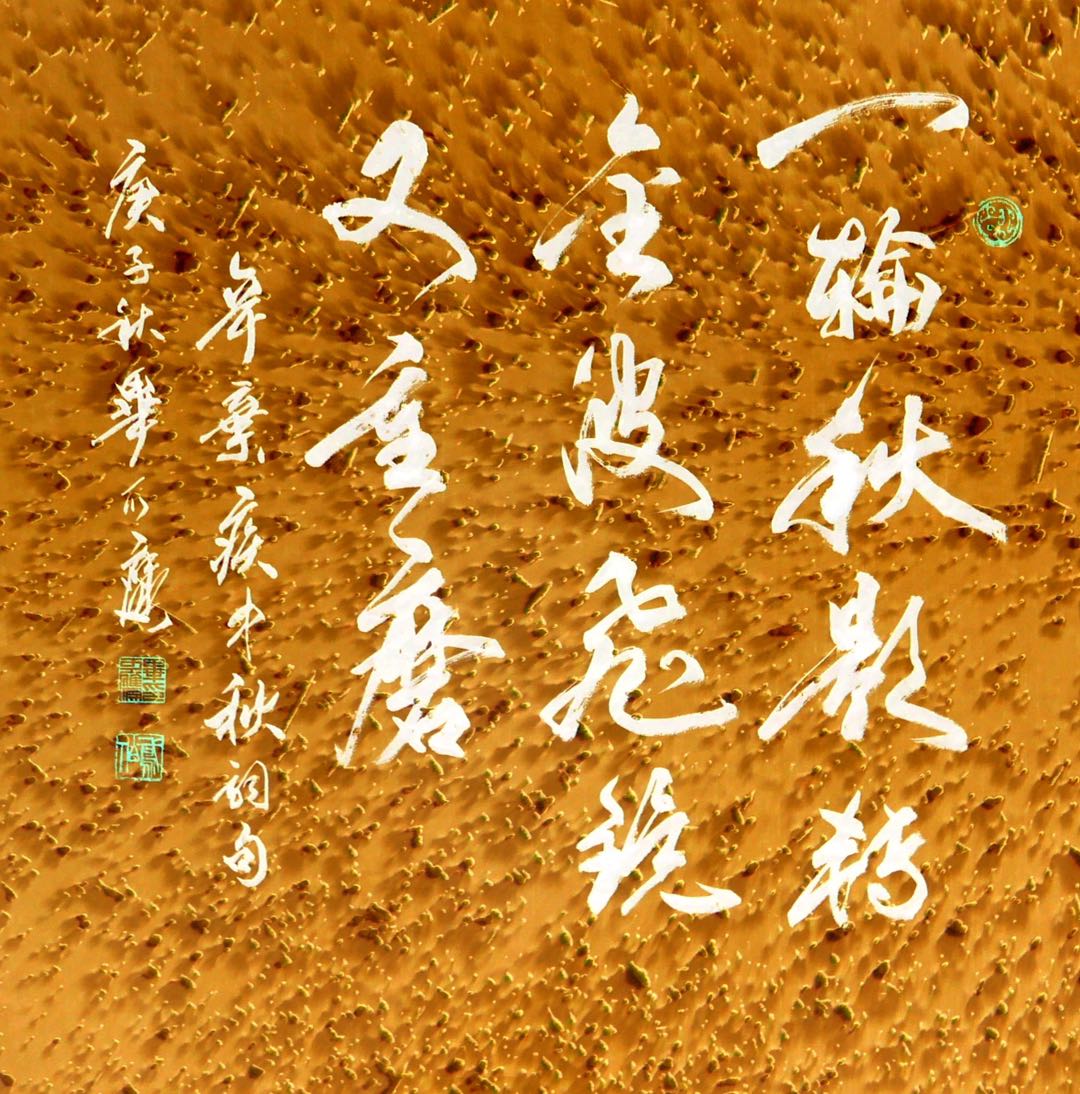 一輪秋影轉
金波飛鏡
又重磨
辛棄疾中秋詞句
庚子秋畢可鷹